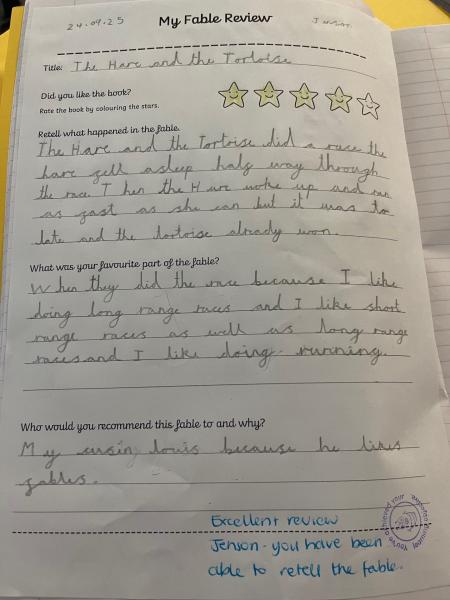 24.09.25
My Fable Review
Title: The Hare and the Tortoise
Did you like the book?
Rate the book by colouring the stars.
Retell what happened in the fable.
The Hare and the Tortoise did a race the
hare fell asleep half way through
the race. Then the Hare woke up and ran
as fast as she can but it was to
late and the tortoise already won.
What was your favourite part of the fable?
When they did the race because I like
doing long range races and I like short
range races as well as long range
races and I like doing running.
Who would you recommend this fable to and why?
My cusin louis because he likes
fables.
Excellent review
Jenson - you have been
able to retell the fable.